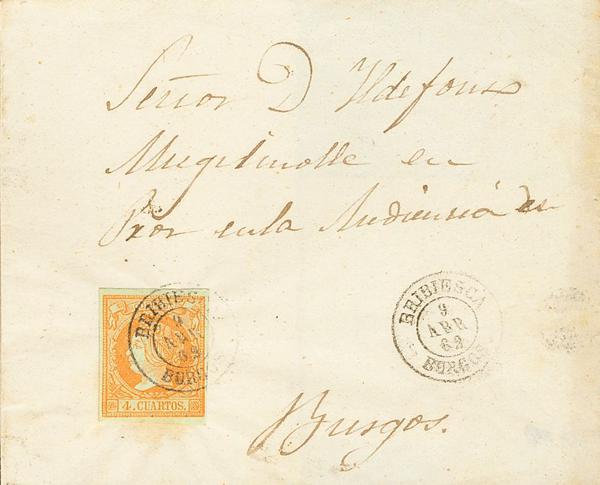 Señor D Ildefonso
en
Pror en la Audiencia de
BRIBIESCA
9
ABR
62
BURGOS
BRIBIESCA
9
ABR
62
BURGOS
4 CUARTOS.
Burgos.